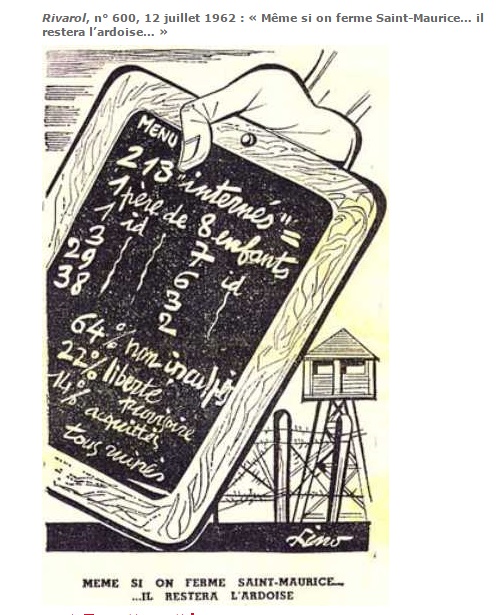 Rivarol, n° 600, 12 juillet 1962 : « Même si on ferme Saint-Maurice... il
restera l’ardoise... »
MENU
213 "internés" =
1 père de 8 enfants
1 id 7 id
3 6
29 3
38 2
64% non inculpés
22% liberté
provisoire
14% acquittés
tous ruinés
Pino
MEME SI ON FERME SAINT-MAURICE...
...IL RESTERA L'ARDOISE